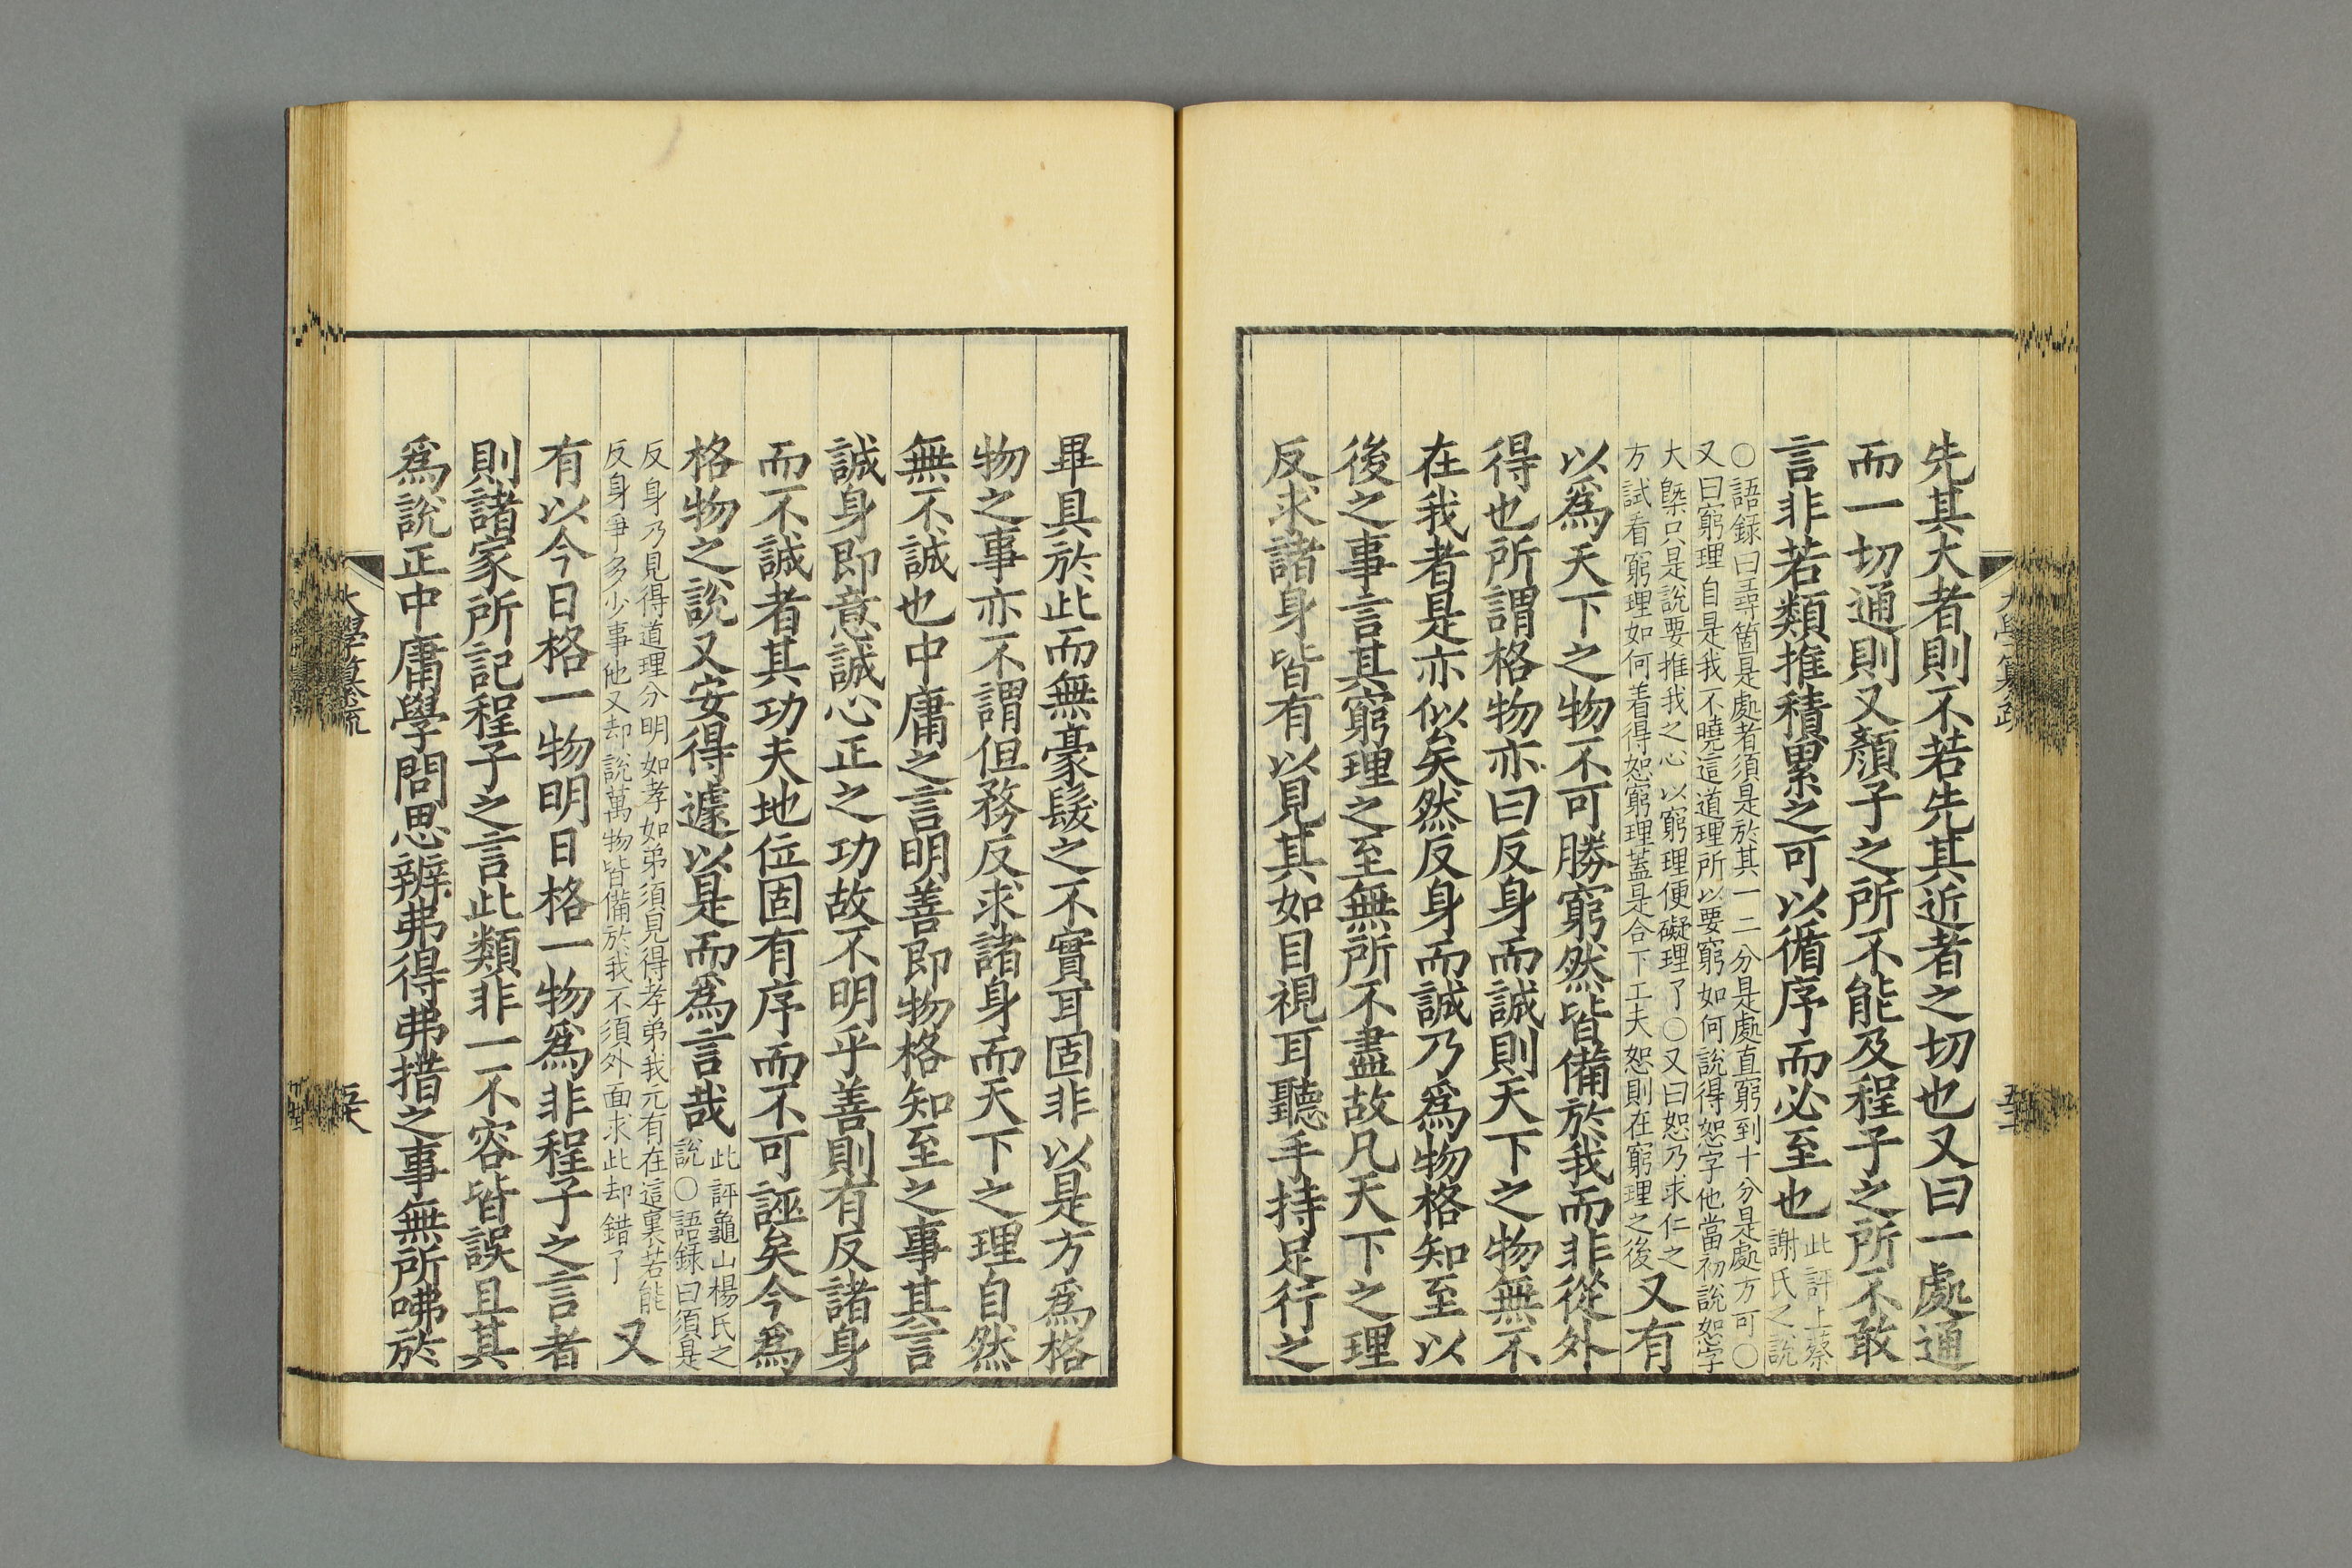 先其大者則不若先其近者之切也又曰一處通
而一切通則又顏子之所不能及程子之所不敢
言非若類推積累之可以循序而必至也此評上蔡
謝氏之說
○語錄曰尋箇是處者須是於其一二分是處直窮到十分是處方可○
又曰窮理自是我不曉這道理所以要窮如何說得恕字他當初說恕字
大槩只是說要推我之心以窮理便礙理了○又曰恕乃求仁之
方試看窮理如何着得恕窮理蓋是合下工夫恕則在窮理之後又有
以爲天下之物不可勝窮然皆備於我而非從外
得也所謂格物亦曰反身而誠則天下之物無不
在我者是亦似矣然反身而誠乃爲物格知至以
後之事言其窮理之至無所不盡故凡天下之理
反求諸身皆有以見其如目視耳聽手持足行之
畢具於此而無豪髮之不實耳固非以是方爲格
物之事亦不謂但務反求諸身而天下之理自然
無不誠也中庸之言明善即物格知至之事其言
誠身即意誠心正之功故不明乎善則有反諸身
而不誠者其功夫地位固有序而不可誣矣今爲
格物之說又安得遽以是而爲言哉此評龜山楊氏之
說○語錄曰須是
反身乃見得道理分明如孝如弟須見得孝弟我元有在這裏若能
反身爭多少事他又却說萬物皆備於我不須外面求此却錯了又
有以今日格一物明日格一物爲非程子之言者
則諸家所記程子之言此類非一不容皆誤且其
爲說正中庸學問思辨弗得弗措之事無所咈於
大學纂疏